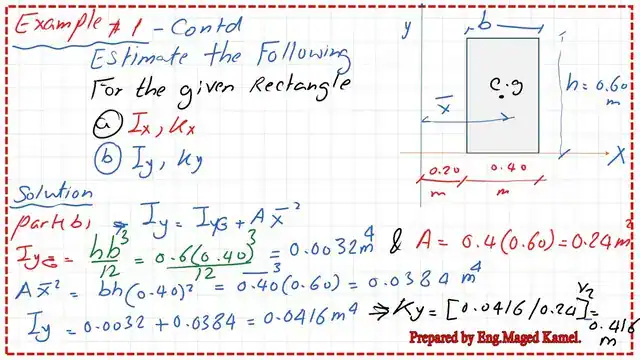 Example #1 - Contd
Estimate the Following
For the given Rectangle
a Ix, kx
b Iy, ky
y
b
c.g
h = 0.60 m
x̄
X
0.20 m
0.40 m
Solution
part b) → Iy = Iyg + A x̄²
Iyg = hb³/12 = 0.6(0.40)³/12 = 0.0032 m⁴ & A = 0.4(0.60) = 0.24 m²
A x̄² = bh(0.40)² = 0.40³(0.60) = 0.0384 m⁴
Iy = 0.0032 + 0.0384 = 0.0416 m⁴ ⇒ Ky = [0.0416/0.24]^1/2 = 0.416 m
Prepared by Eng.Maged Kamel.